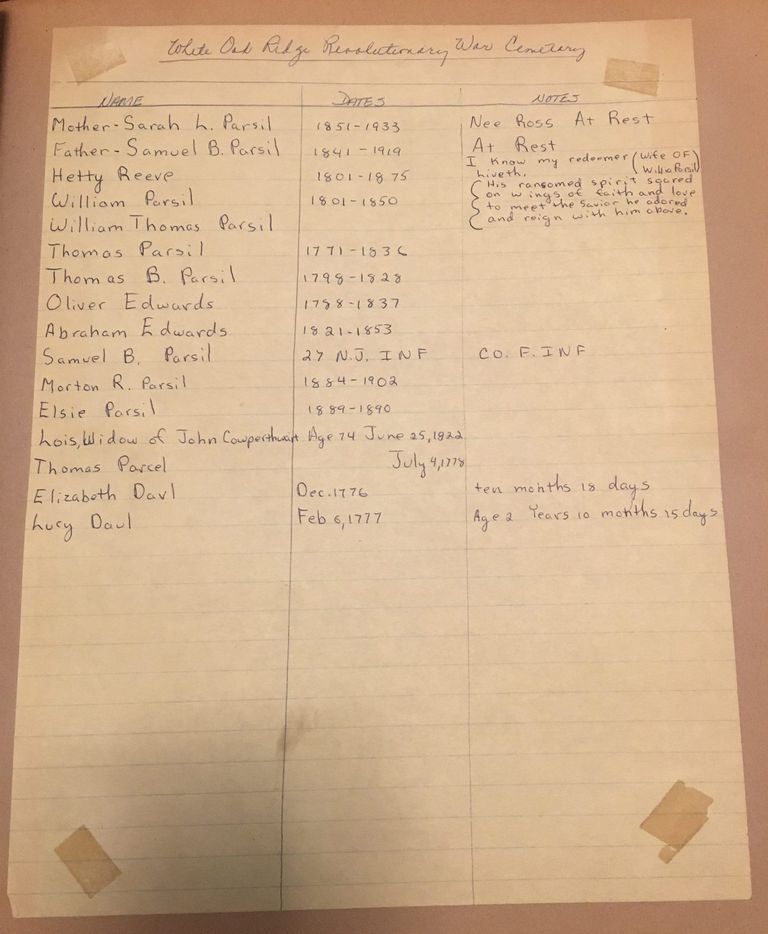 White Oak Ridge Revolutionary War Cemetary
NAME DATES NOTES
Mother-Sarah L. Parsil 1851-1933 Nee Ross At Rest
Father-Samuel B. Parsil 1841-1919 At Rest
Hetty Reeve 1801-1875 I know my redeemer liveth. (Wife OF William Parsil)
William Parsil 1801-1850 His ransomed spirit soared
on wings of faith and love
to meet the Savior he adored
and reign with him above.
William Thomas Parsil
Thomas Parsil 1771-1836
Thomas B. Parsil 1798-1828
Oliver Edwards 1788-1837
Abraham Edwards 1821-1853
Samuel B. Parsil 27 N.J. INF CO. F. INF
Morton R. Parsil 1884-1902
Elsie Parsil 1889-1890
Lois, Widow of John Cowperthwart Age 74 June 25, 1822
Thomas Parcel July 4, 1778
Elizabeth Davl Dec. 1776 ten months 18 days
Lucy Daul Feb 6, 1777 Age 2 Years 10 months 15 days